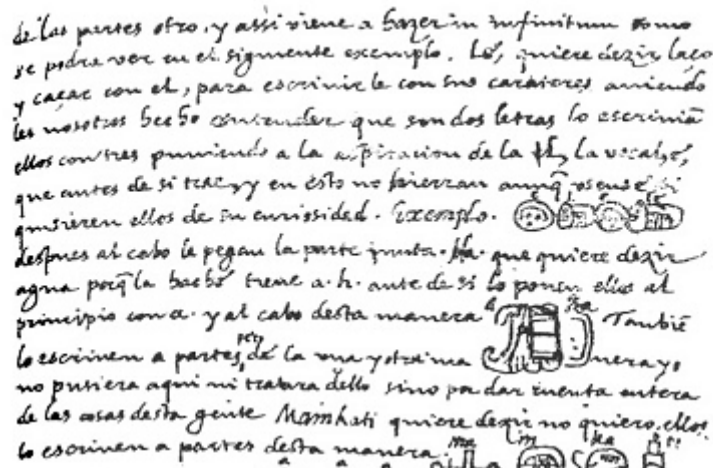 de las partes otro, y assi viene a hazer in infinitum como
se podra ver en el siguiente exemplo. Lé, quiere dezir laço
y caçar con el, para escrivirle con sus carateres aviendo
les nosotros hecho entender que son dos letras lo escrivian
ellos con tres puniendo a la aspiracion de la l, la vocal, é,
que antes de si trae, y en esto no hierran aunq̃ osense, si
quisieren ellos de su curiosidad. Exemplo.
despues al cabo le pegan la parte junta. Ha. que quiere dezir
agua porq̃ la hache tiene a. h. ante de si lo ponen ellos al
principio con a. y al cabo desta manera ha Tambiẽ
lo escriven a partes, pero de la una y otra ma nera yo
no pusiera aqui ni tratara dello sino por dar cuenta entera
de las cosas desta gente Mainkati quiere dezir no quiero, ellos
lo escriven a partes desta manera. ma in ka ti